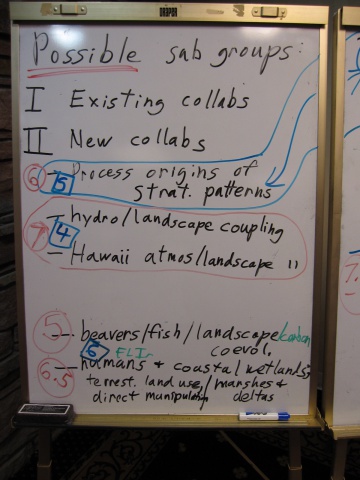 Possible sub groups:
I Existing collabs
II New collabs
6 - Process origins of
5 strat. patterns
- hydro/landscape coupling
7 4
- Hawaii atmos/landscape "
5 -- beavers/fish/landscape carbon
coevol.
6 FLI
6.5 -- humans & coastal wetlands
terrest. land use/ marshes &
direct manipulation deltas